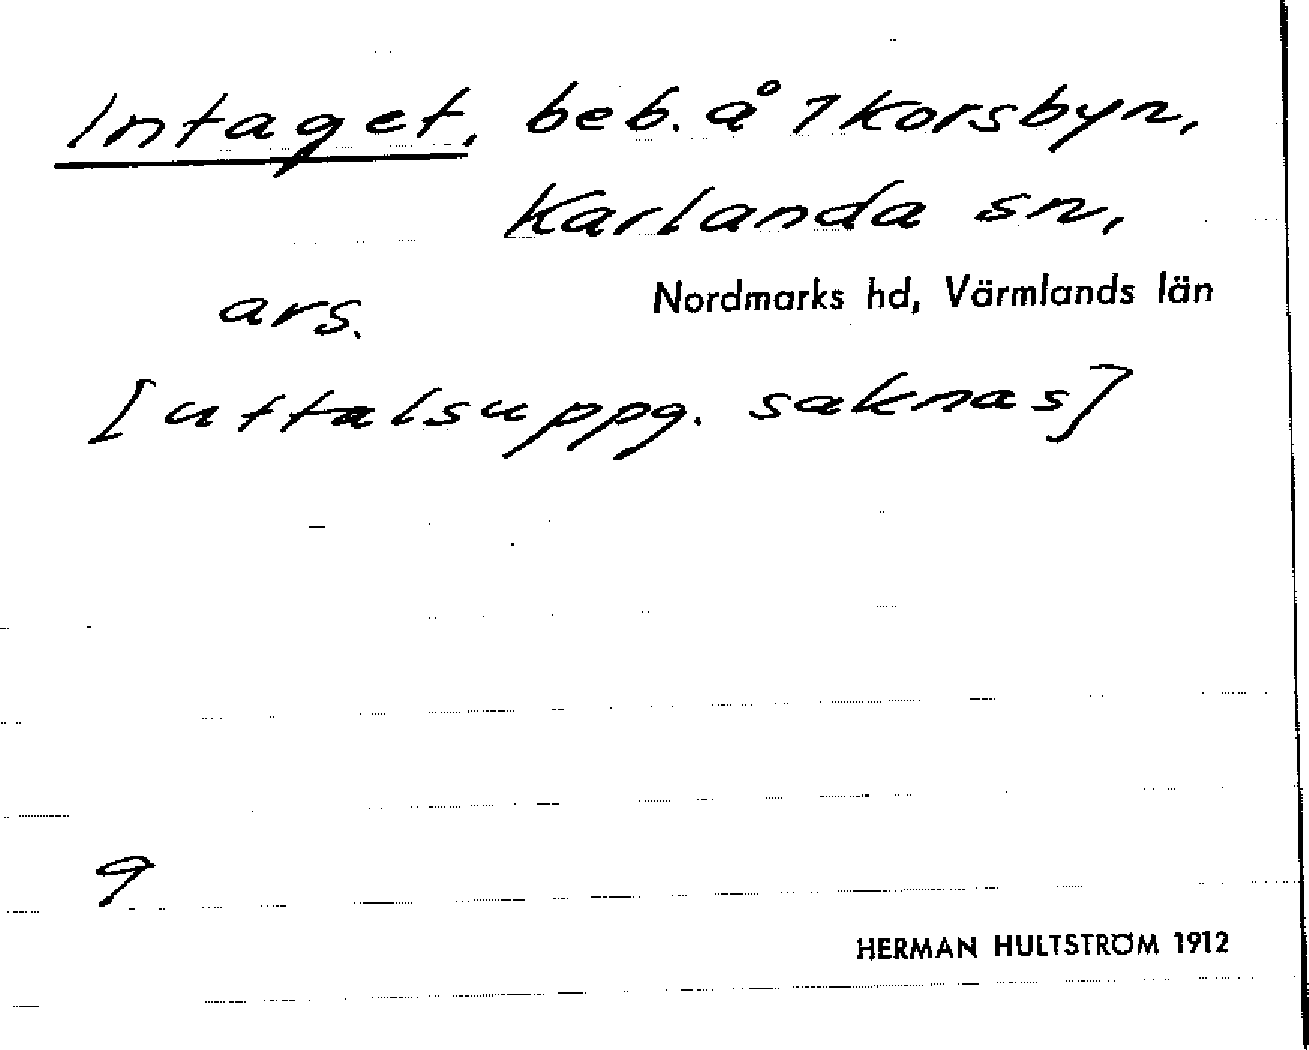 Intaget, beb. å 1 Korsbyn,
Karlanda sn,
ars. Nordmarks hd, Värmlands län
[uttalsuppg. saknas]
9
HERMAN HULTSTRÖM 1912